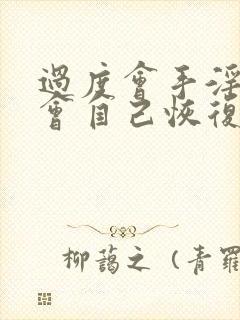 過度會手淫
會自己恢復
柳藹之 (青羅